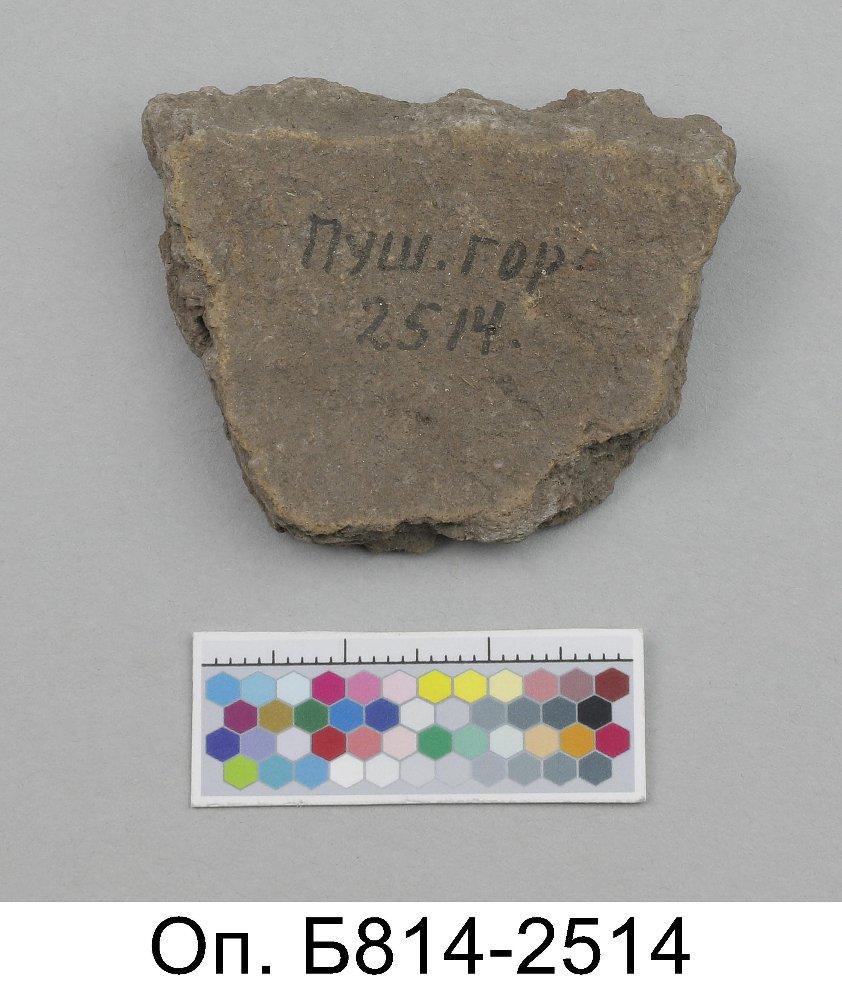 Пуш. гор.
2514.
Оп. Б814-2514